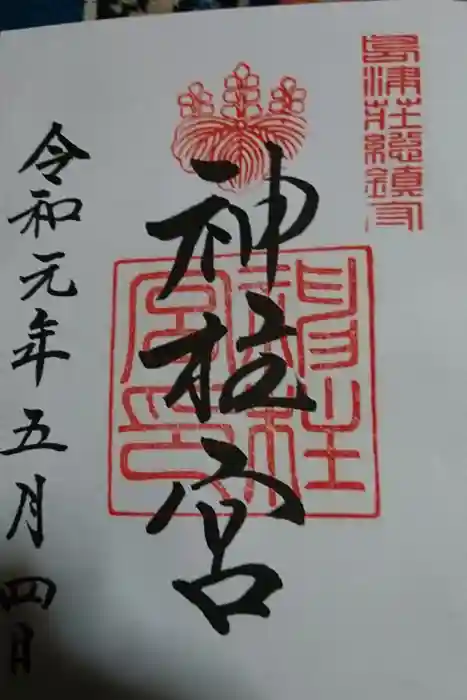 島津荘総鎮守
神柱宮
令和元年五月四日